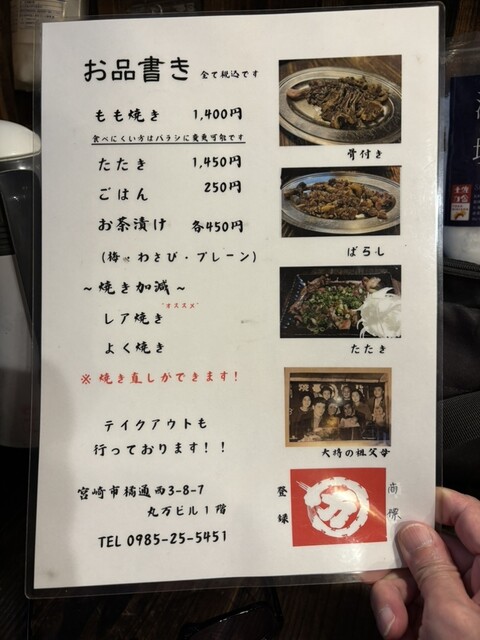 お品書き 全て税込です
もも焼き 1,400円
食べにくい方はバラシに変更可能です
たたき 1,450円
ごはん 250円
お茶漬け 各450円
(梅・わさび・プレーン)
~焼き加減~
"オススメ"
レア焼き
よく焼き
※焼き直しができます!
テイクアウトも
行っております!!
宮崎市橘通西3-8-7
丸万ビル1階
TEL 0985-25-5451
骨付き
ばらし
たたき
大将の祖父母
登録
商標
万